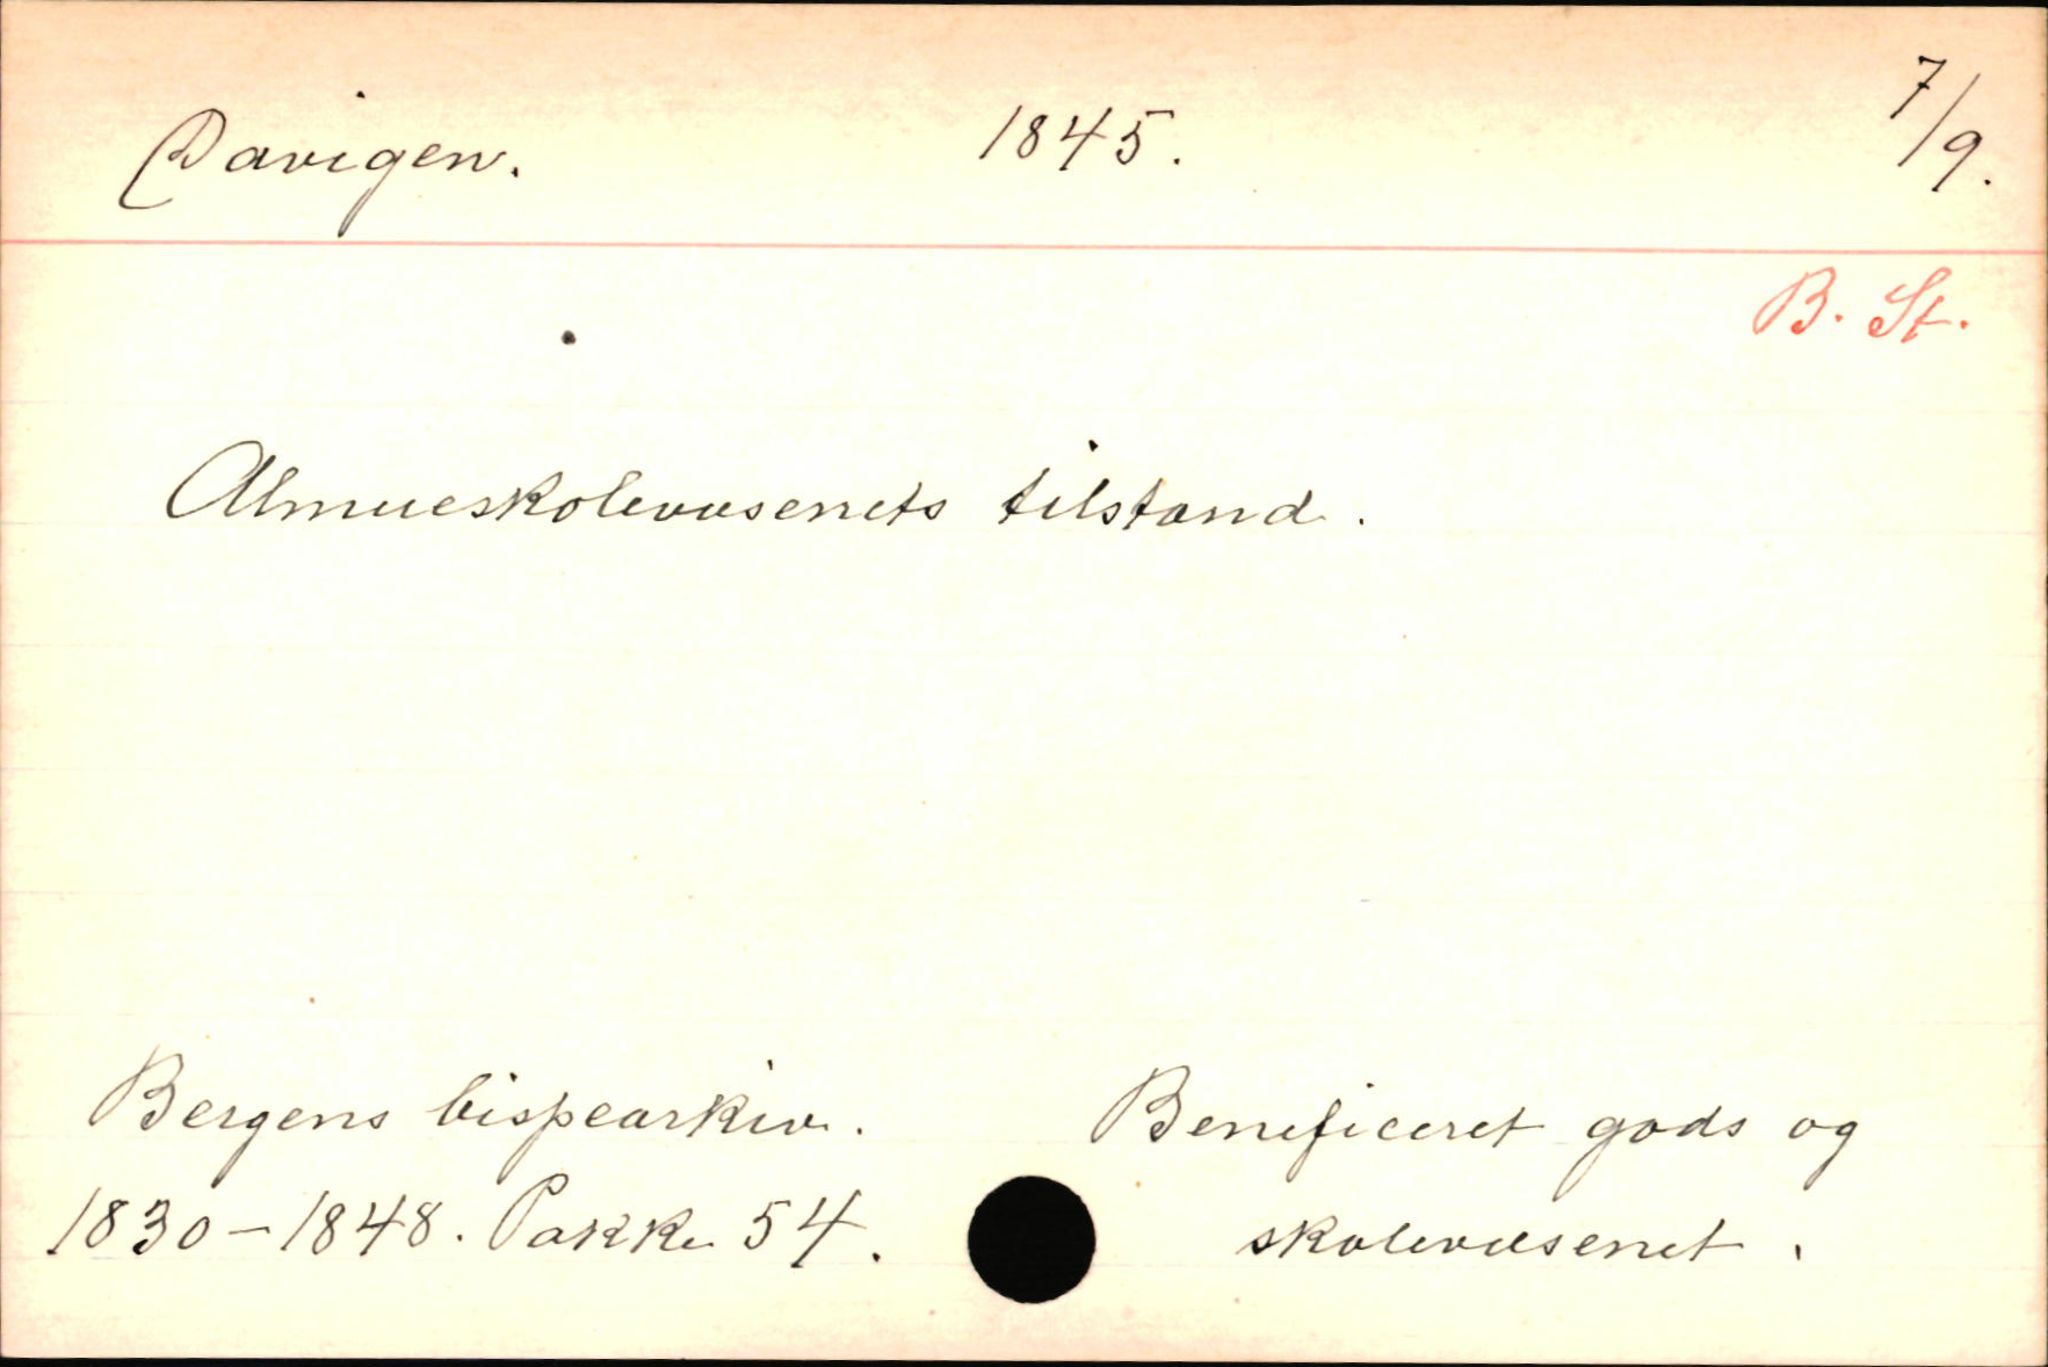 Davigen. 1845. 7/9.
B. St.
Almueskolevæsenets tilstand.
Bergens bispearkiv. Beneficeret gods og
1830-1848. Pakke 54. skolevæsenet.